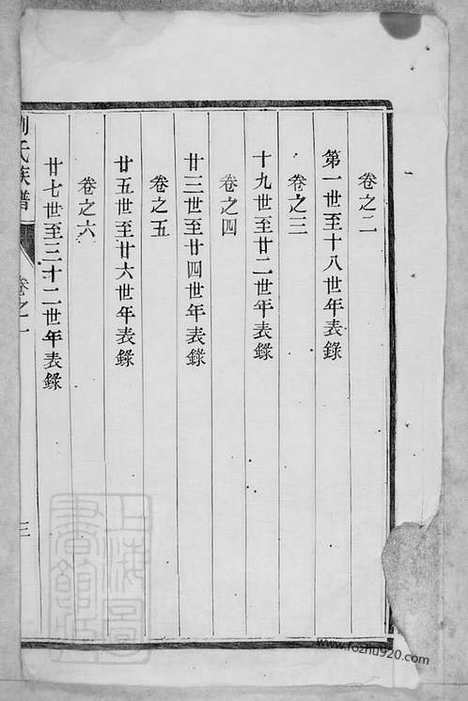 卷之二
第一世至十八世年表錄
卷之三
十九世至廿二世年表錄
卷之四
廿三世至廿四世年表錄
卷之五
廿五世至廿六世年表錄
卷之六
廿七世至三十二世年表錄
氏族譜
卷之一
三
上海圖書館藏
www.fozhu920.com